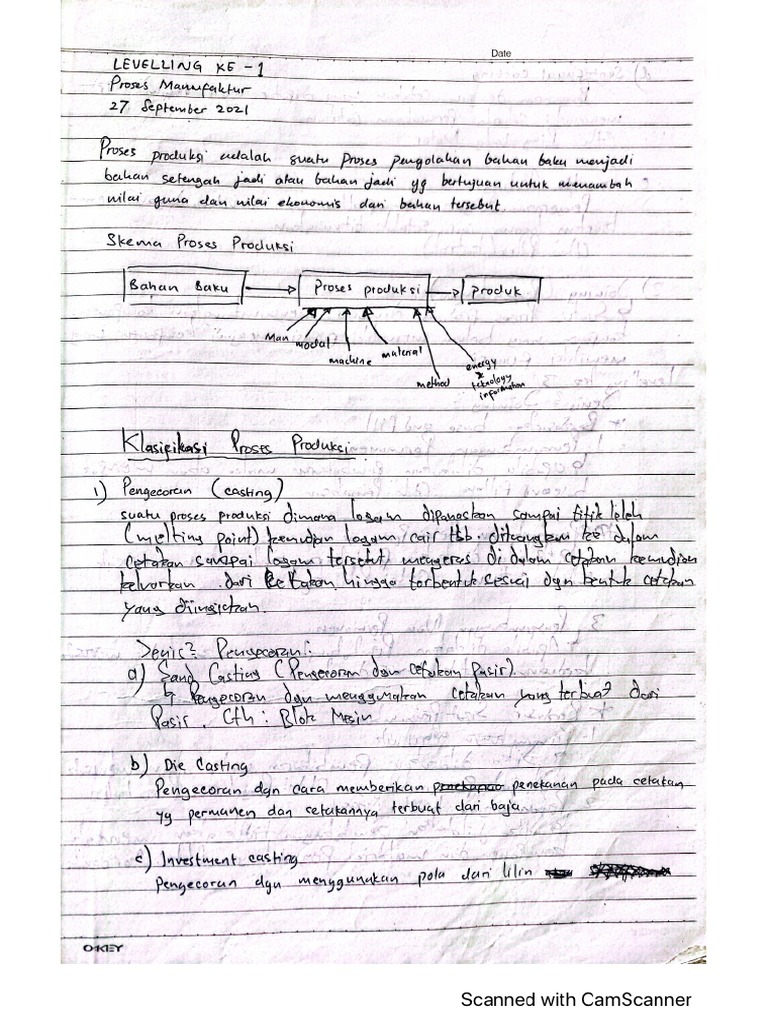 Date
LEVELLING KE - 1
Proses Manufaktur
27 September 2021
Proses produksi adalah suatu proses pengolahan bahan baku menjadi
bahan setengah jadi atau bahan jadi yg bertujuan untuk menambah
nilai guna dan nilai ekonomis dari bahan tersebut.
Skema Proses Produksi
Bahan Baku
Proses produksi
produk
Man
modal
machine
material
method
energy
teknology
information
Klasifikasi Proses Produksi
1) Pengecoran (casting)
suatu proses produksi dimana logam dipanaskan sampai titik leleh
(melting point) kemudian logam/cair tsb. dituangkan ke dalam
cetakan sampai logam tersebut mengeras di dalam cetakan kemudian
keluarkan dari cetakan hingga terbentuk sesuai dgn bentuk cetakan
yang diinginkan.
Jenis² Pengecoran:
a) Sand Casting (Pengecoran dgn cetakan Pasir).
↳ Pengecoran dgn menggunakan cetakan yang terbuat dari
Pasir. Cth: Blok Mesin
b) Die Casting
Pengecoran dgn cara memberikan penekanan pada cetakan
yg permanen dan cetakannya terbuat dari baja
c) Investment casting
Pengecoran dgn menggunakan pola dari lilin
OKEY
Scanned with CamScanner